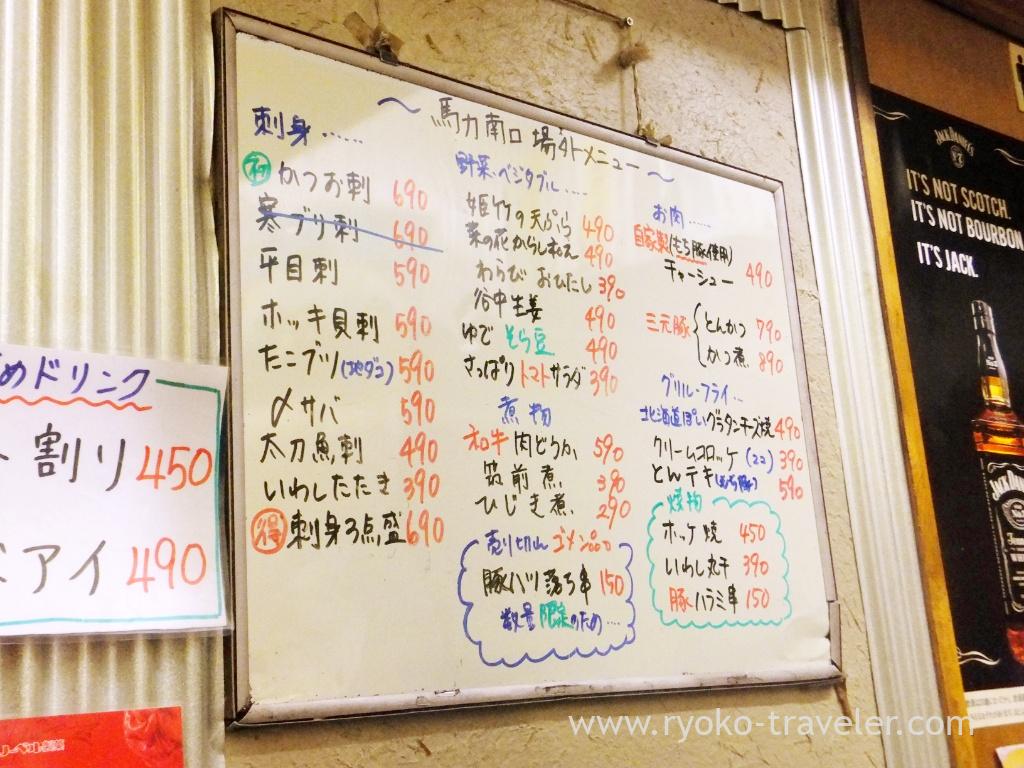 〜 馬力南口 場外メニュー 〜
刺身……
初 かつお刺 690
寒ブリ刺 690
平目刺 590
ホッキ貝刺 590
たこブツ(地ダコ) 590
〆サバ 590
太刀魚刺 490
いわしたたき 390
得 刺身3点盛 690
野菜・ベジタブル……
姫竹の天ぷら 490
菜の花からし和え 490
わらび おひたし 390
谷中生姜 490
ゆで そら豆 490
さっぱりトマトサラダ 390
煮物
和牛 肉どうふ 590
筑前煮 390
ひじき煮 290
売り切れ ゴメン
豚ハツ落ち串 150
数量限定のため…
お肉……
自家製(もち豚使用)
チャーシュー 490
三元豚 { とんかつ 790
かつ煮 890
グリル・フライ…
北海道ぽいグラタンチーズ焼 490
クリームコロッケ (2コ) 390
とんテキ(もち豚) 590
焼物
ホッケ焼 450
いわし丸干 390
豚ハラミ串 150
めドリンク
割り 450
アイ 490
JACK DANIEL'S
IT'S NOT SCOTCH.
IT'S NOT BOURBON
IT'S JACK.
www.ryoko-traveler.com